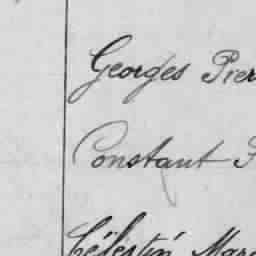 Georges Pier
Constant
Célestin Marc